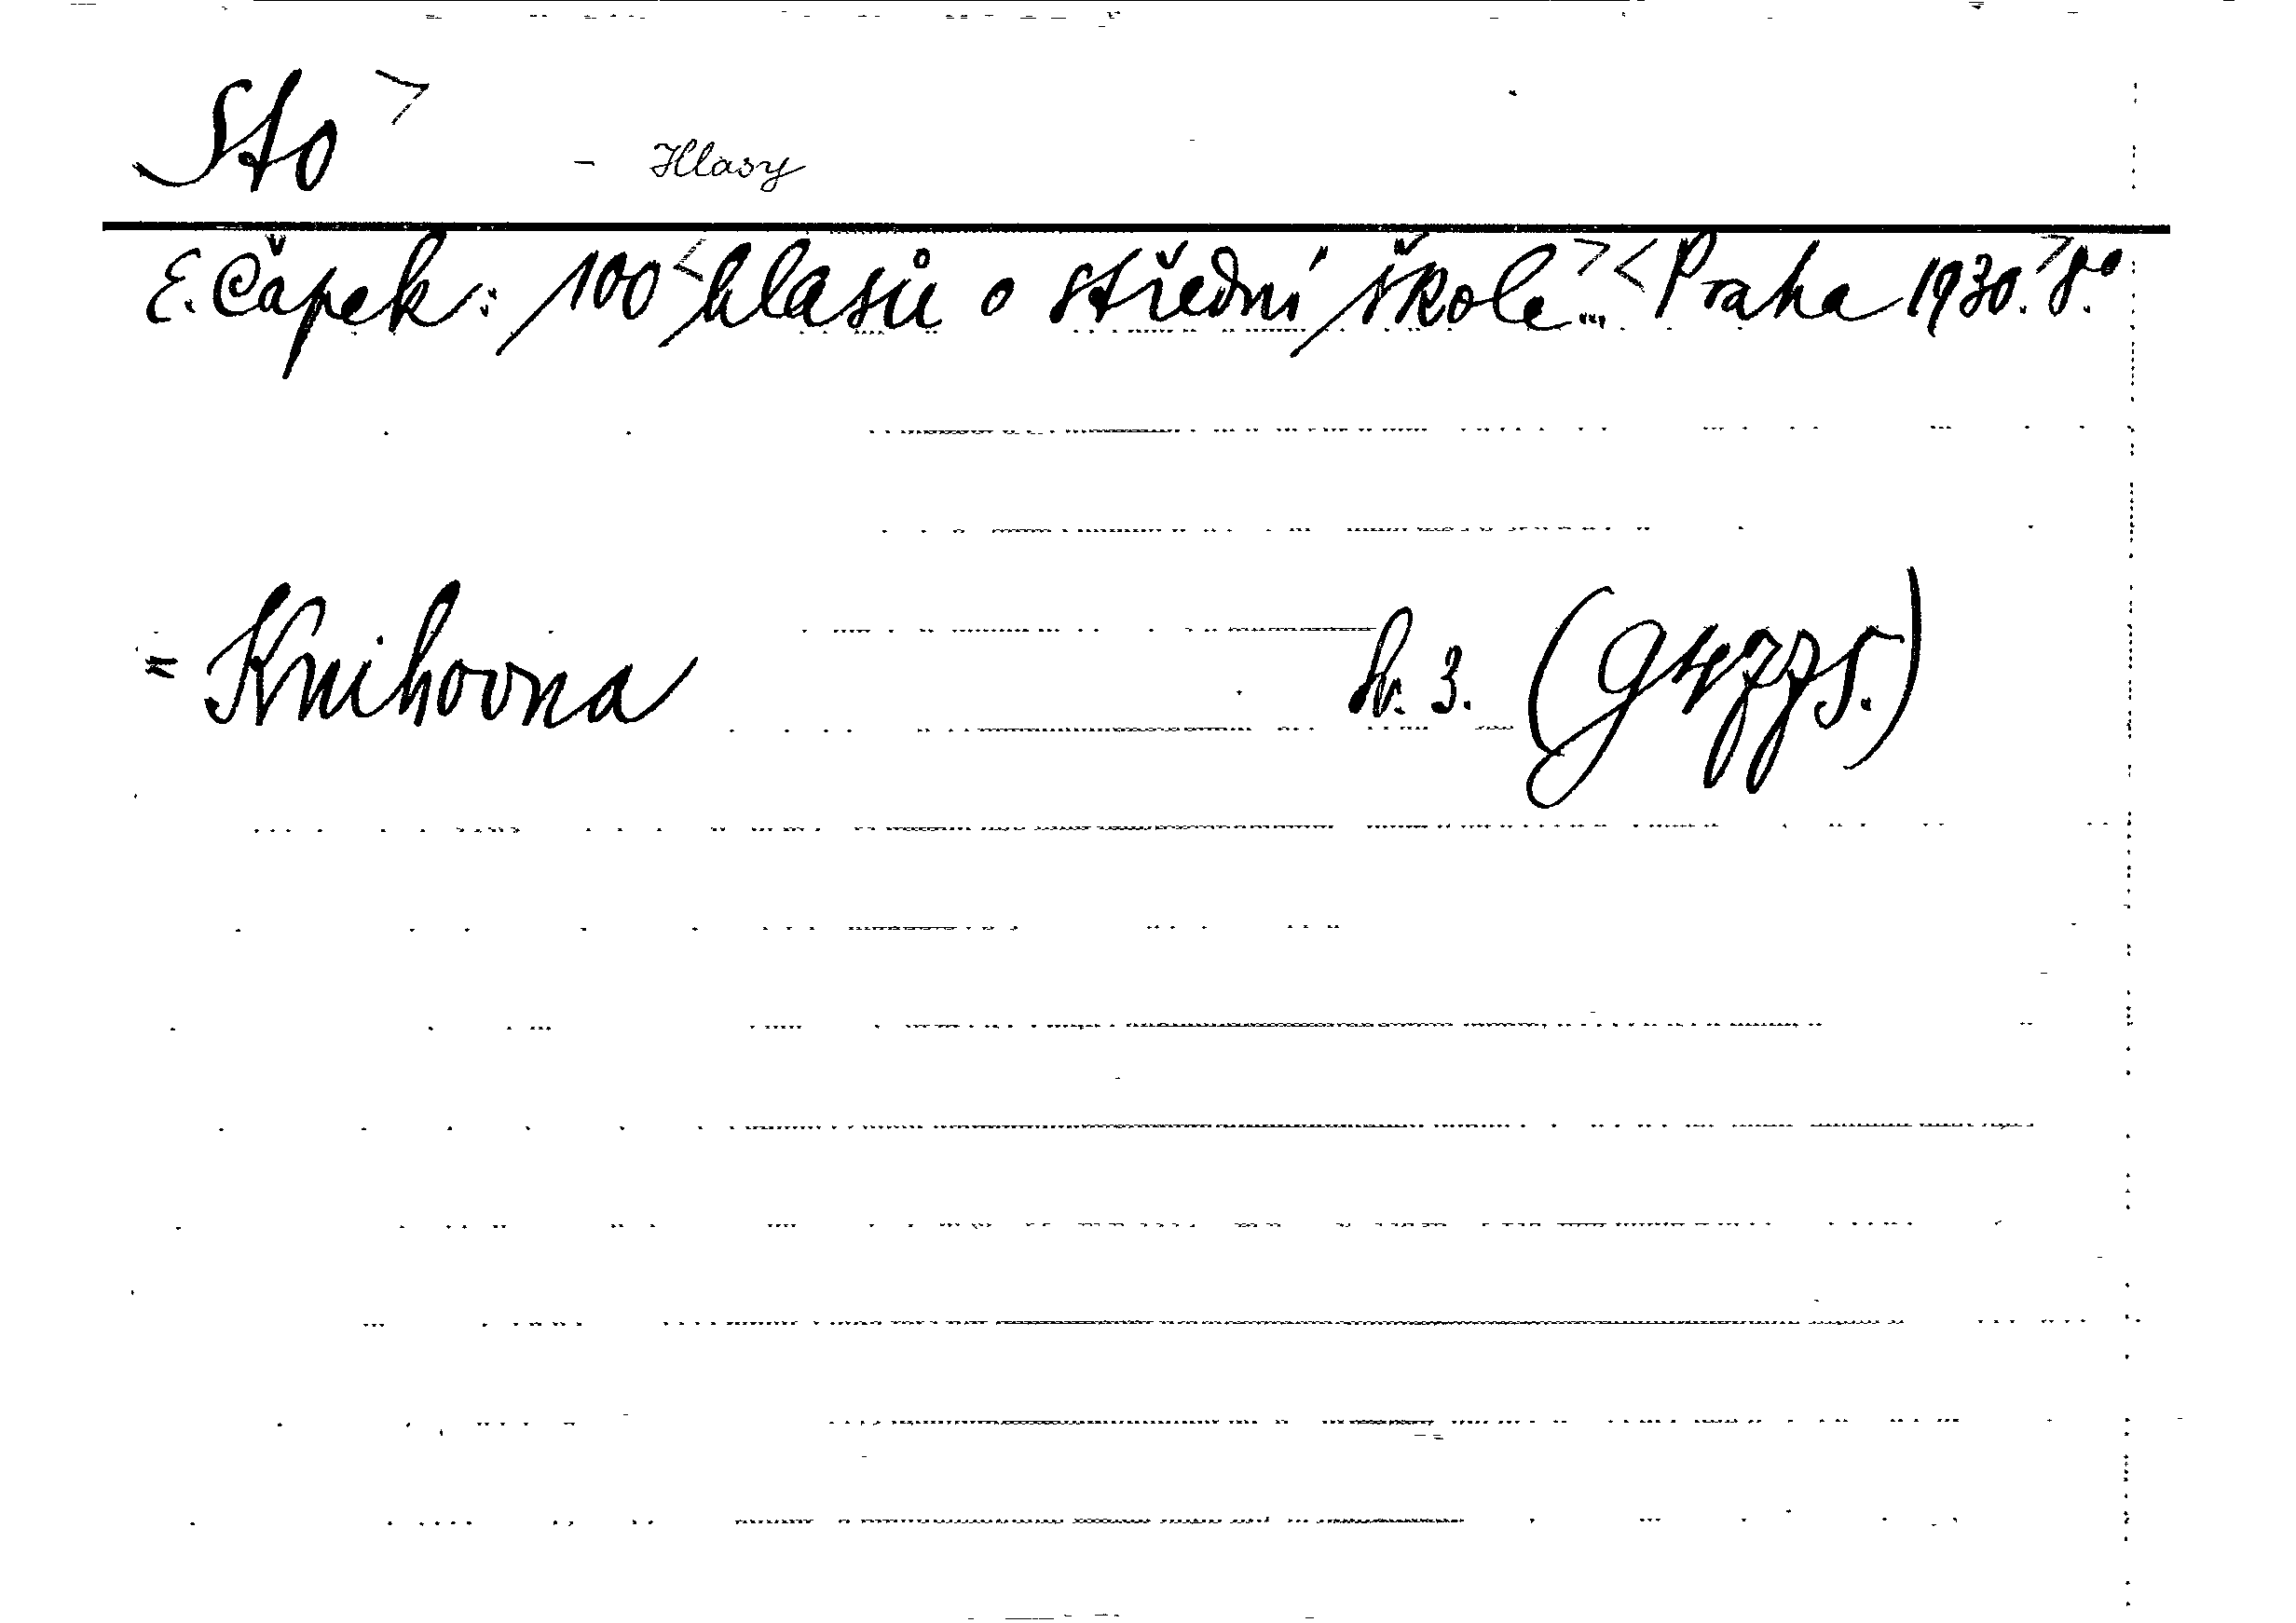 Sto > - Hlasy
E. Čapek: 100 < hlasů o střední škole... > < Praha 1930. > 8.º
= Knihovna sv. 3. (G4775.)